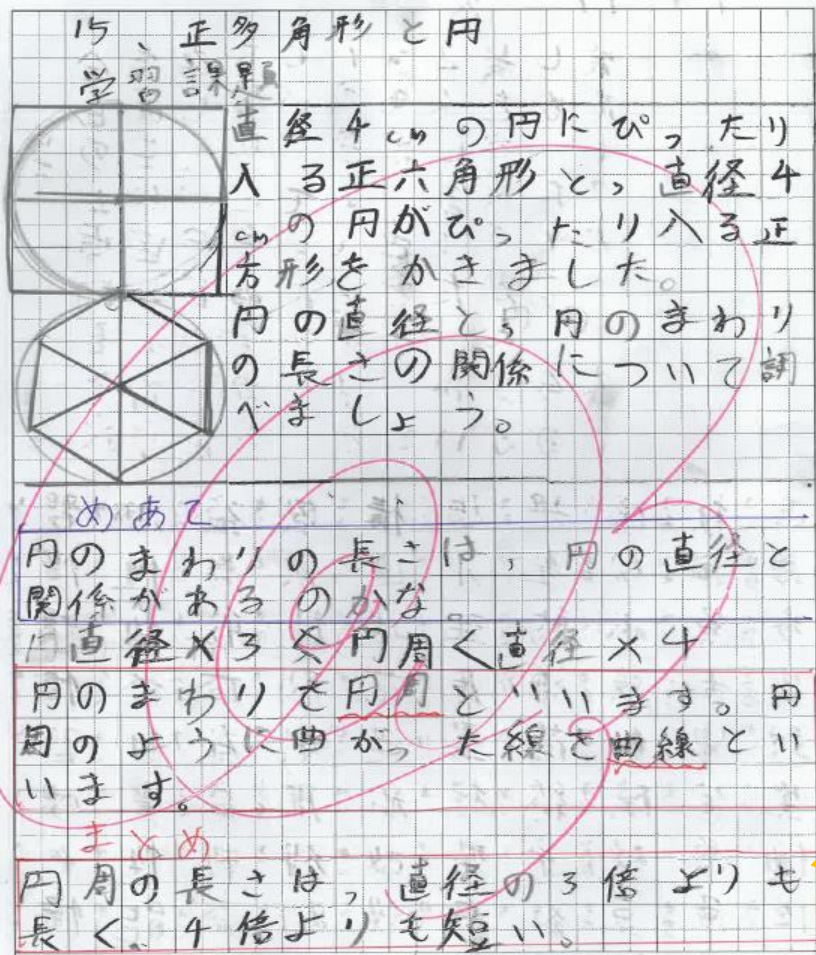 15、正多角形と円
学習課題
直径4cmの円にぴったり
入る正六角形と、直径4
cmの円がぴったり入る正
方形をかきました。
円の直径と、円のまわり
の長さの関係について調
べましょう。
めあて
円のまわりの長さは、円の直径と
関係があるのかな
直径×3<円周<直径×4
円のまわりを円周といいます。円
周のように曲がった線を曲線とい
います。
まとめ
円周の長さは、直径の3倍よりも
長く、4倍よりも短い。